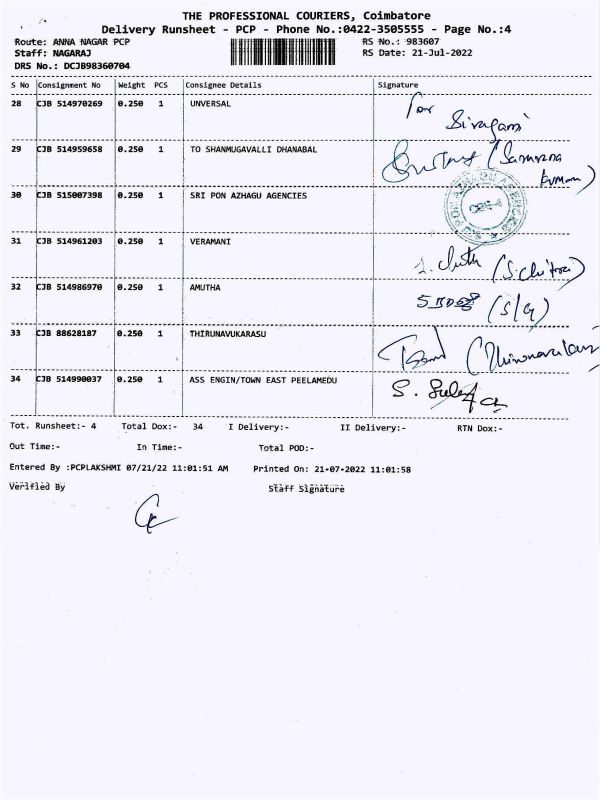 THE PROFESSIONAL COURIERS, Coimbatore
Delivery Runsheet - PCP - Phone No.:0422-3505555 - Page No.:4
Route: ANNA NAGAR PCP RS No.: 983607
Staff: NAGARAJ RS Date: 21-Jul-2022
DRS No.: DCJB98360704
S No Consignment No Weight PCS Consignee Details Signature
28 CJB 514970269 0.250 1 UNVERSAL for
Sivagami
29 CJB 514959658 0.250 1 TO SHANMUGAVALLI DHANABAL
30 CJB 515007398 0.250 1 SRI PON AZHAGU AGENCIES
31 CJB 514961203 0.250 1 VERAMANI (S.Chitra)
32 CJB 514986970 0.250 1 AMUTHA (S/G)
33 CJB 88628187 0.250 1 THIRUNAVUKARASU
34 CJB 514990037 0.250 1 ASS ENGIN/TOWN EAST PEELAMEDU
Tot. Runsheet:- 4 Total Dox:- 34 I Delivery:- II Delivery:- RTN Dox:-
Out Time:- In Time:- Total POD:-
Entered By :PCPLAKSHMI 07/21/22 11:01:51 AM Printed On: 21-07-2022 11:01:58
Verified By Staff Signature